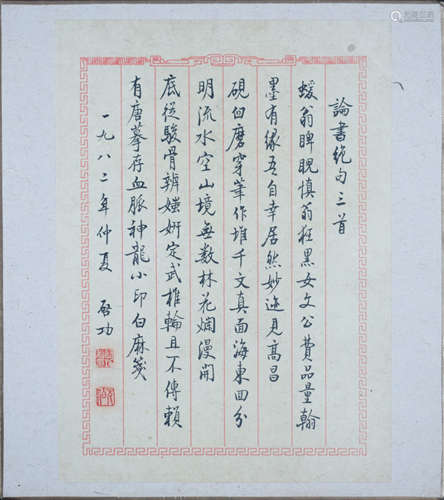 論書絶句三首
蝯翁睥睨慎翁狂黑女文公費品量翰
墨有緣吾自幸居然妙迹見高昌
硯臼磨穿筆作堆千文真面海東回分
明流水空山境無數林花爛漫開
底從駿骨辨媸妍定武椎輪且不傳賴
有唐摹存血脈神龍小印白麻箋
一九八二年仲夏 啟功